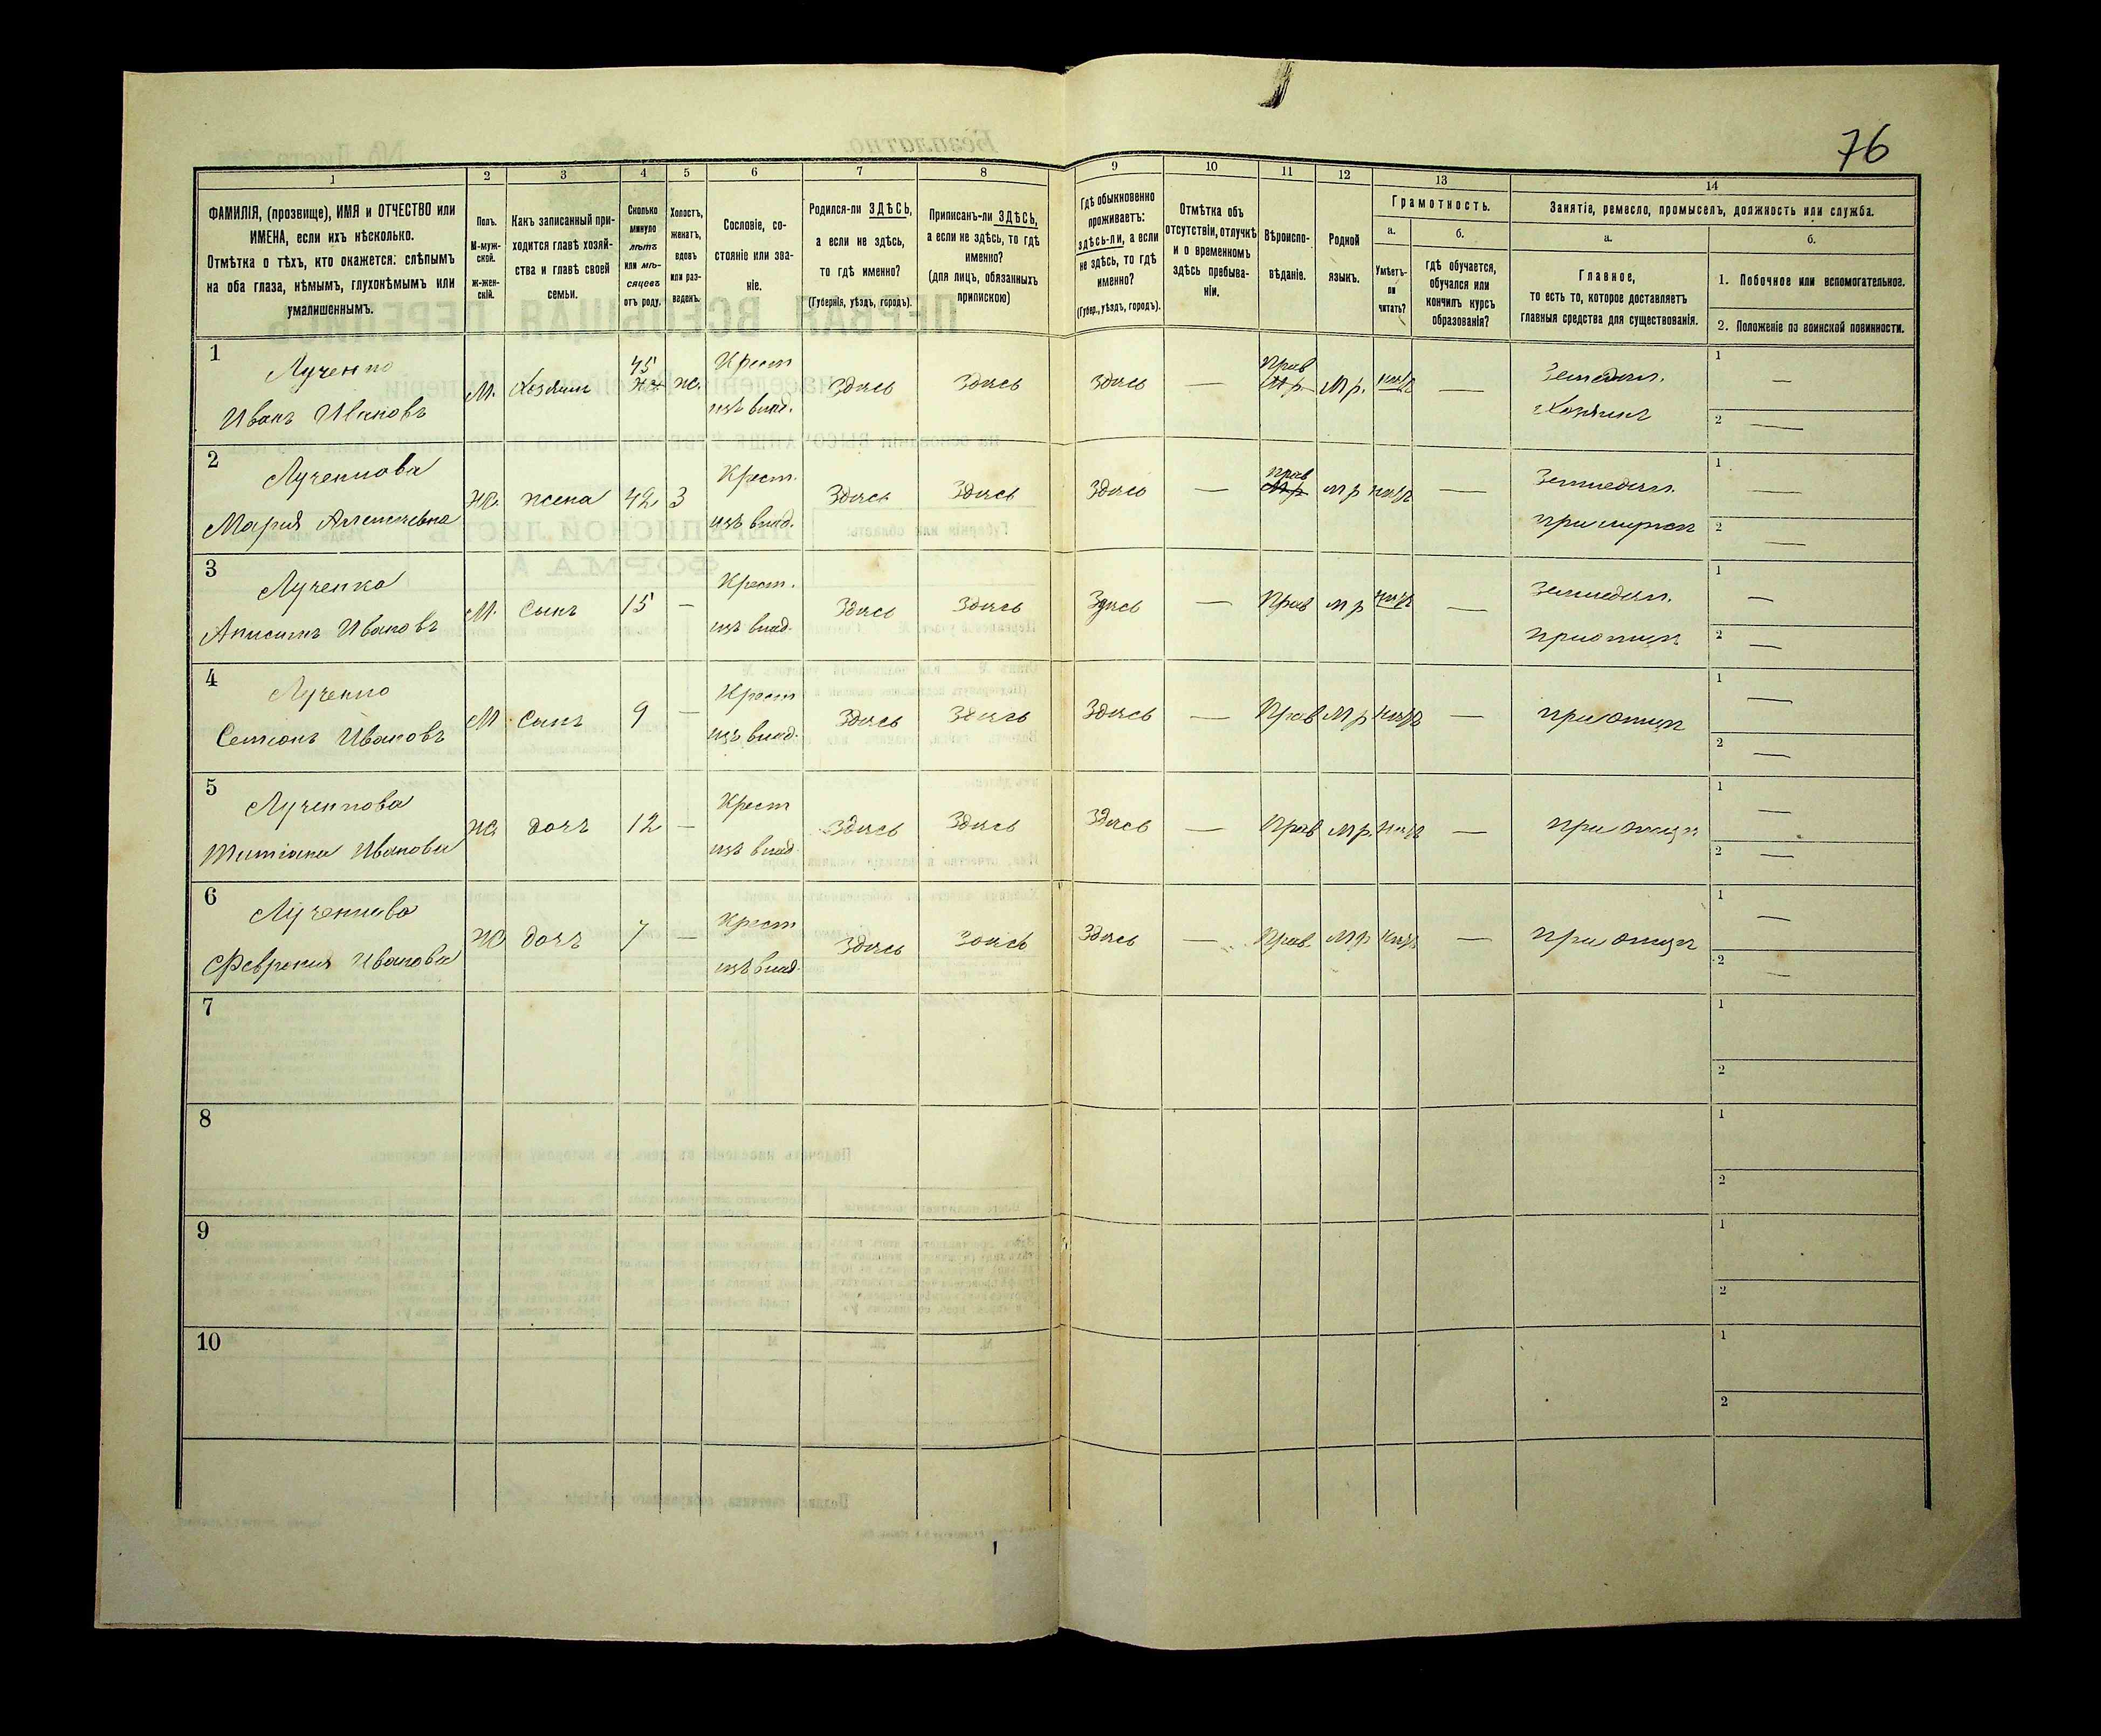 76
1 2 3 4 5 6 7 8 9 10 11 12 13 14
ФАМИЛІЯ, (прозвище), ИМЯ и ОТЧЕСТВО или
ИМЕНА, если ихъ нѣсколько.
Отмѣтка о тѣхъ, кто окажется: слѣпымъ
на оба глаза, нѣмымъ, глухонѣмымъ или
умалишеннымъ.
Полъ.
М-муж-
ской.
Ж-жен-
скій.
Какъ записанный при-
ходится главѣ хозяй-
ства и главѣ своей
семьи.
Сколько
минуло
лѣтъ
или мѣ-
сяцевъ
отъ роду.
Холостъ,
женатъ,
вдовъ
или раз-
веденъ.
Сословіе, со-
стояніе или зва-
ніе.
Родился-ли ЗДѢСЬ,
а если не здѣсь,
то гдѣ именно?
(Губернія, уѣздъ, городъ).
Приписанъ-ли ЗДѢСЬ,
а если не здѣсь, то гдѣ
именно?
(для лицъ, обязанныхъ
припискою)
Гдѣ обыкновенно
проживаетъ:
здѣсь-ли, а если
не здѣсь, то гдѣ
именно?
(Губер., уѣздъ, городъ).
Отмѣтка объ
отсутствіи, отлучкѣ
и о временномъ
здѣсь пребыва-
ніи.
Вѣроиспо-
вѣданіе.
Родной
языкъ.
Грамотность.
а.
Умѣетъ-
ли
читать?
б.
гдѣ обучается,
обучался или
кончилъ курсъ
образованія?
Занятіа, ремесло, промыселъ, должность или служба.
а.
Главное,
то есть то, которое доставляетъ
главныя средства для существованія.
б.
1. Побочное или вспомогательное.
2. Положеніе по воинской повинности.
1 Лученко 45 Крест Прав Земедѣл. 1 —
Иванъ Ивановъ М. Хозяинъ ж. изъ влад. Здѣсь Здѣсь Здѣсь — М р. — Хозяинъ 2 —
2 Лученкова Крест. Прав Земледѣл. 1 —
Марія Алексѣевна Ж. жена 42 З изъ влад. Здѣсь Здѣсь Здѣсь — м р — при мужѣ 2 —
3 Лученко Крест. Земледѣл. 1 —
Анисимъ Ивановъ М. Сынъ 15 — изъ влад. Здѣсь Здѣсь Здѣсь — Прав м р — при отцѣ 2 —
4 Лученко Крест 1 —
Семіонъ Ивановъ М Сынъ 9 — изъ влад. Здѣсь Здѣсь Здѣсь — Прав М р — при отцѣ 2 —
5 Лученкова Крест 1 —
Татіана Иванова Ж дочь 12 — изъ влад Здѣсь Здѣсь Здѣсь — Прав М р. — при отцѣ 2 —
6 Лученкова Крест 1 —
Февронія Иванова Ж дочь 7 — изъ влад. Здѣсь Здѣсь Здѣсь — Прав. М р — при отцѣ 2 —
7 1
2
8 1
2
9 1
2
10 1
2